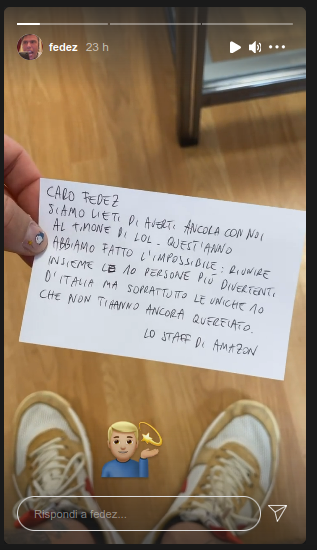 fedez 23 h
CARO FEDEZ
SIAMO LIETI DI AVERTI ANCORA CON NOI
AL TIMONE DI LOL - QUEST'ANNO
ABBIAMO FATTO L'IMPOSSIBILE: RIUNIRE
INSIEME LE 10 PERSONE PIÙ DIVERTENTI
D'ITALIA MA SOPRATTUTTO LE UNICHE 10
CHE NON TI HANNO ANCORA QUERELATO.
LO STAFF DI AMAZON
Rispondi a fedez...